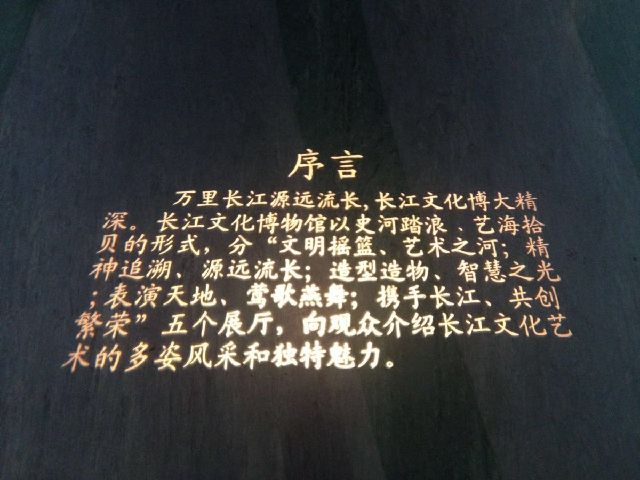 序言
万里长江源远流长,长江文化博大精
深。长江文化博物馆以史河踏浪、艺海拾
贝的形式，分“文明摇篮、艺术之河；精
神追溯、源远流长；造型造物、智慧之光
；表演天地、莺歌燕舞；携手长江、共创
繁荣”五个展厅，向观众介绍长江文化艺
术的多姿风采和独特魅力。